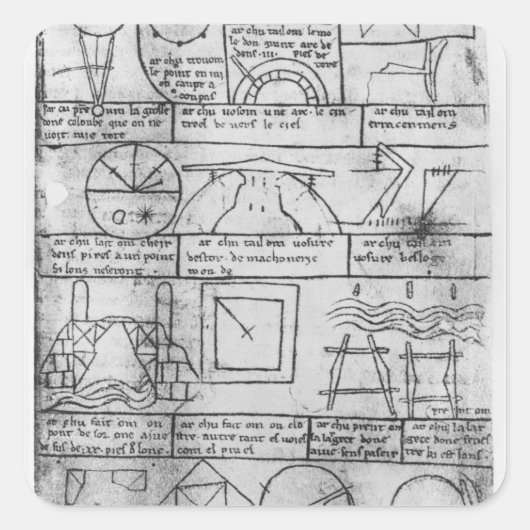 ar chu trovom
le point en mi
on canpe a
conpas
ar chu tail om le mo
le don grant arc de
dens .iii. pies de
tere
par cu pre om la grosse
done colonbe que on ne
voit mie tote
ar chu vosom une arc . le cin
treel de vers le ciel
ar chu tail om
erracenmens
ar chu fait om cheir
dens pires a un point
si lons ne seront
ar chu tail om vosure
destor de machonerie
roonde
ar chu tail om
vosure besloge
ar chu fait om on
pont desor one aive
de fus de .xx. pies d lons
ar chu fait om on clo
stre autre tant es voies
com el prael
ar chu prent om
la largece done
aive sens paseir
ar chu prent om
la lar
gece done fenes
tre ki est lons